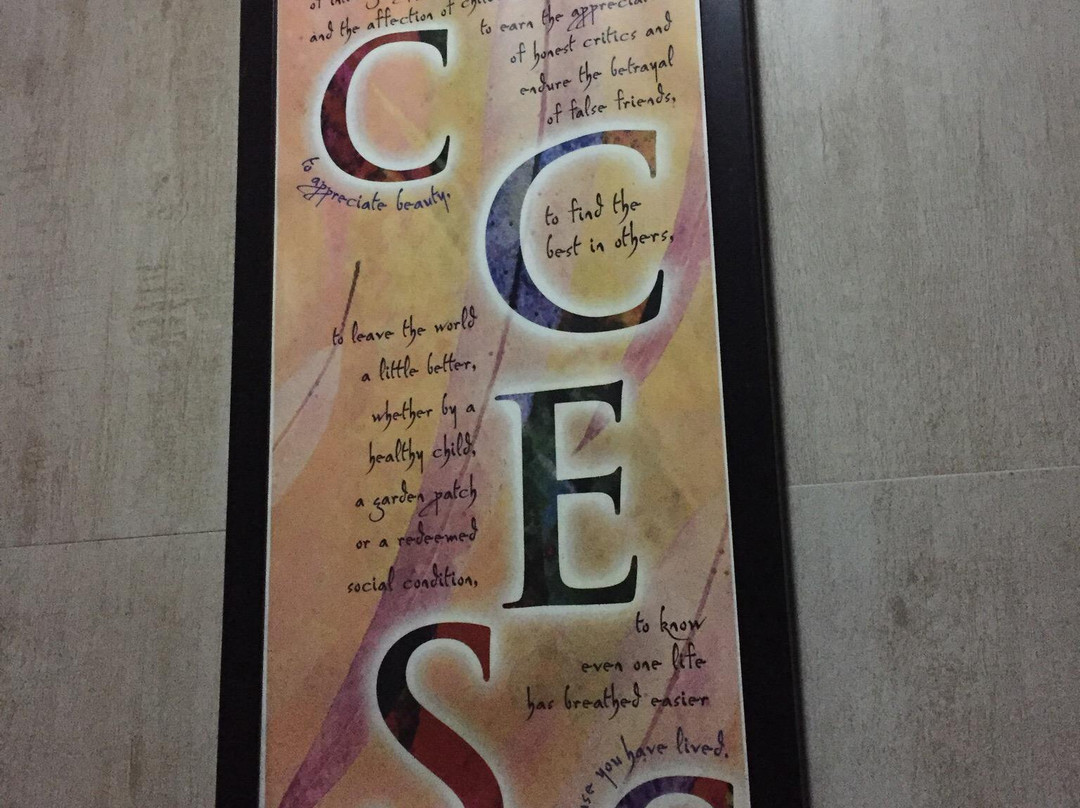 and the affection of
to earn the
of honest critics and
endure the betrayal
of false friends,
C
to appreciate beauty,
C
to find the
best in others,
to leave the world
a little better,
whether by a
healthy child,
a garden patch
or a redeemed
social condition,
E
to know
even one life
has breathed easier
you have lived.
S